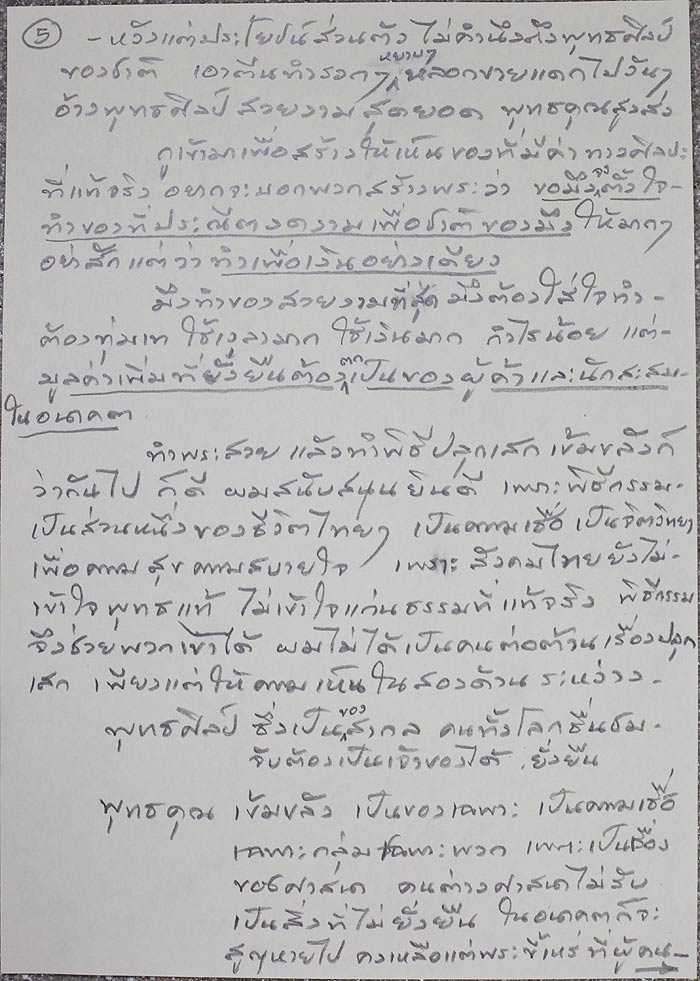 ⑤ - หวังแต่ประโยชน์ส่วนตัว ไม่คำนึงถึงพุทธศิลป์
ของชาติ เอาตีนทำรวกๆ หยาบๆ หลอกขายแดกไปวันๆ
อ้างพุทธศิลป์ สวยงาม สุดยอด พุทธคุณสูงส่ง
กูเข้ามาเพื่อสร้างให้เห็นของที่มีค่าทางศิลปะ
ที่แท้จริง อยากจะบอกพวกสร้างพระว่า ขอมึงจงตั้งใจ-
ทำของที่ประณีตงดงามเพื่อชาติของมึง ให้มากๆ
อย่าสักแต่ว่าทำเพื่อเงินอย่างเดียว
มึงทำของสวยงามที่สุด มึงต้องใส่ใจทำ-
ต้องทุ่มเท ใช้เวลามาก ใช้เงินมาก กำไรน้อย แต่-
มูลค่าเพิ่มที่ยั่งยืนต้องตกเป็นของผู้ค้าและนักสะสม-
ในอนาคต
ทำพระสวย แล้วทำพิธีปลุกเสก เข้มขลังก็
ว่ากันไป ก็ดี ผมสนับสนุนยินดี เพราะพิธีกรรม-
เป็นส่วนหนึ่งของชีวิตไทยๆ เป็นความเชื่อ เป็นจิตวิทยา
เพื่อความสุข ความสบายใจ เพราะสังคมไทยยังไม่-
เข้าใจพุทธแท้ ไม่เข้าใจแก่นธรรมที่แท้จริง พิธีกรรม
จึงช่วยพวกเขาได้ ผมไม่ได้เป็นคนต่อต้านเรื่องปลุก
เสก เพียงแต่ให้ความเห็นในสองด้าน ระหว่าง-
พุทธศิลป์ ซึ่งเป็นของสากล คนทั้งโลกชื่นชม-
จับต้องเป็นเจ้าของได้ ยั่งยืน
พุทธคุณ เข้มขลัง เป็นของเฉพาะ เป็นความเชื่อ
เฉพาะกลุ่ม เฉพาะพวก เพราะเป็นเรื่อง
ของศาสนา คนต่างศาสนาไม่รับ
เป็นสิ่งที่ไม่ยั่งยืน ในอนาคตก็จะ
สูญหายไป คงเหลือแต่พระขี้เหร่ ที่ผู้คน-